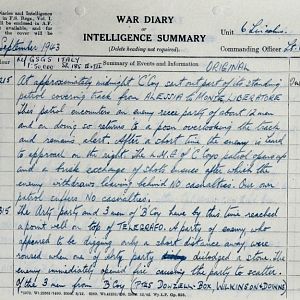 WAR DIARY
OF
INTELLIGENCE SUMMARY
(Delete heading not required).
Unit 6 Lincolns.
Commanding Officer
September 1943
Summary of Events and Information ORIGINAL
Ref GSGS ITALY
At approximately midnight 'C' Coy sent out part of the standing
patrol covering track from ALESSIA to MONTE LIBERATORE
This patrol encounters an enemy recce party of about 12 men
and on doing so returns to a posn overlooking the track
and remains alert. After a short time the enemy is heard
to approach on the right. The L.M.G of 'C' Coys patrol opens up
and a brisk exchange of shots ensues after which the
enemy withdraws leaving behind NO casualties. Our own
patrol suffers NO casualties.
The Arty party and 3 men of 'B' Coy have by this time reached
a point well on top of TELEGRAFO. A party of enemy who
appeared to be digging only a short distance away were
roused when one of Arty party dislodged a stone. The
enemy immediately opened fire causing the party to scatter.
Of the 3 men from 'B' Coy (PTES DONZELL-BOX, WILKINSON & DOWNS